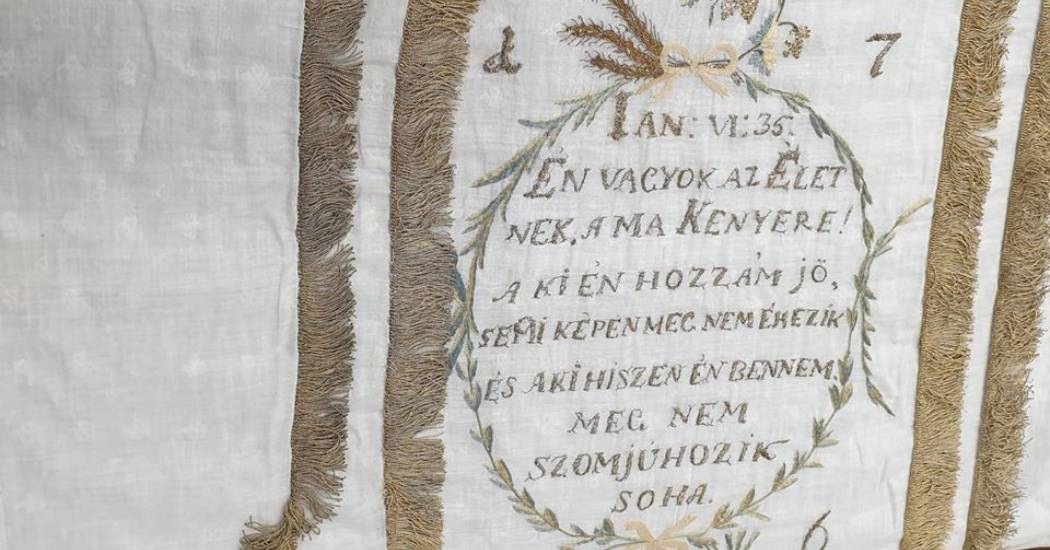 1 7
IAN: VI: 35.
ÉN VAGYOK AZ ÉLET
NEK, AMA KENYERE!
A KI ÉN HOZZÁM JÖ,
SEMI KÉPEN MEG NEM ÉHEZIK
ÉS A KI HISZEN ÉN BENNEM.
MEG NEM
SZOMJÚHOZIK
SOHA.
6